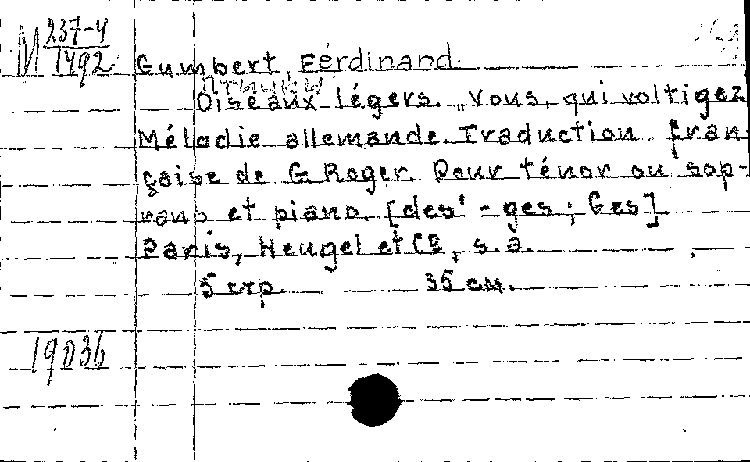 М 237-4
1492
Gumbert, Ferdinand.
Oiseaux légers. „Vous, qui voltigez
Mélodie allemande. Traduction fran-
çaise de G. Roger. Pour ténor ou sop-
rano et piano. [des' - ges; Ges]
Paris, Heugel et Ce, s. a.
5 стр. 35 см.
19036